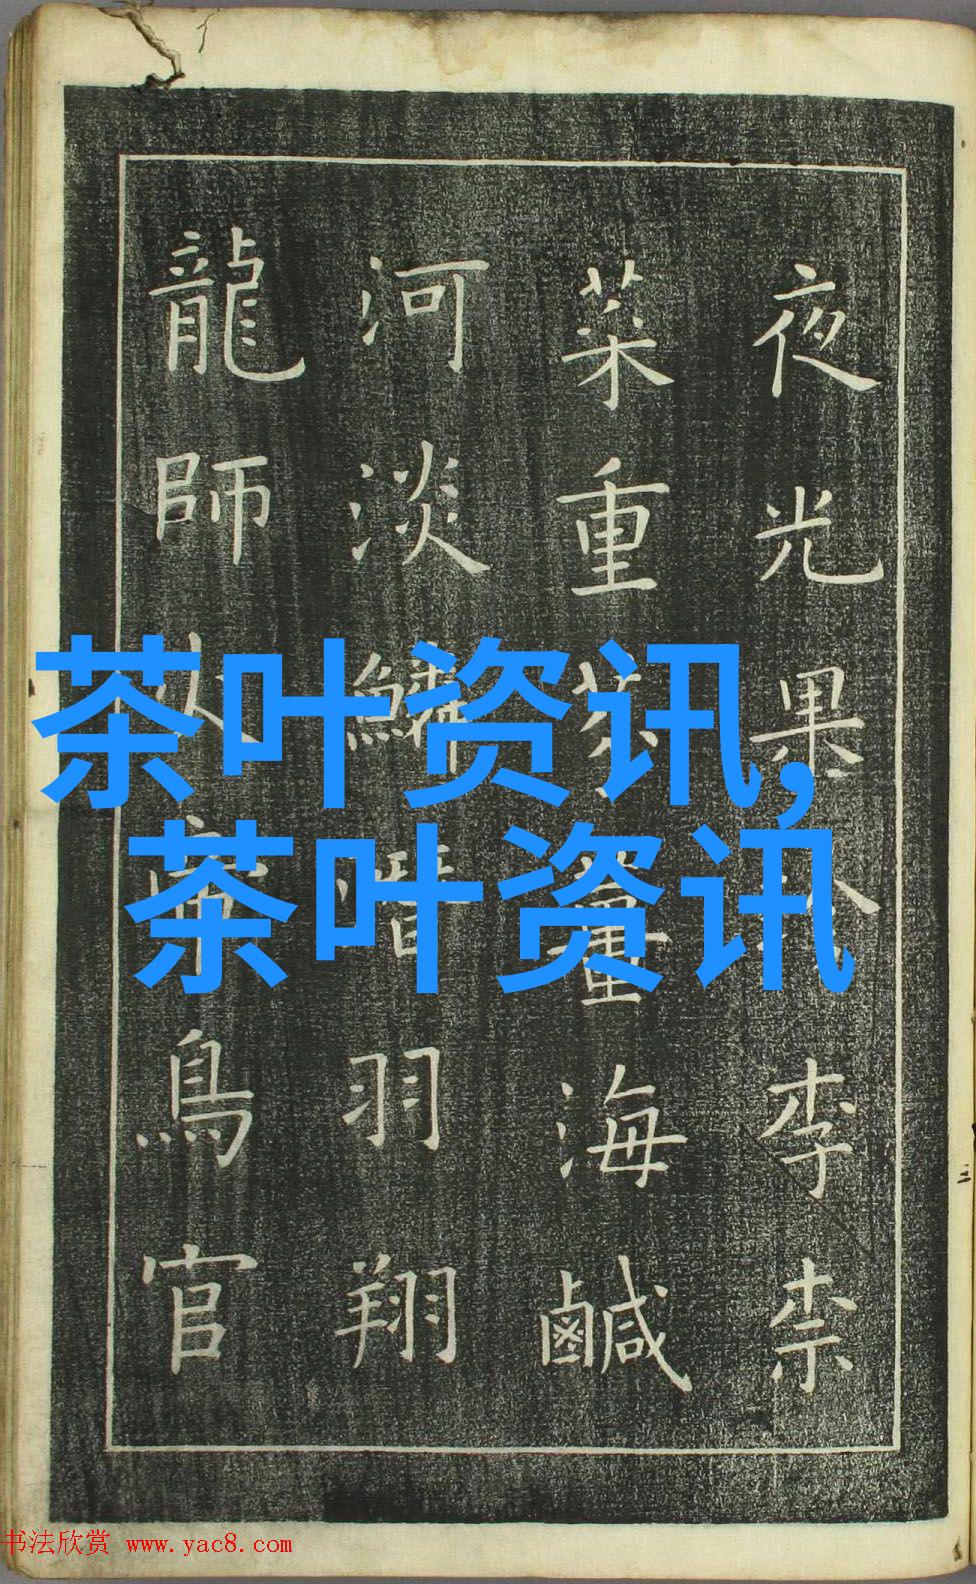 夜光果李柰
菜重芥薑海鹹
河淡鱗潛羽翔
龍師火帝鳥官
茶叶资讯,
茶叶资讯
书法欣赏 www.yac8.com